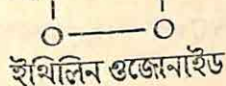 O—O
ইথিলিন ওজোনাইড